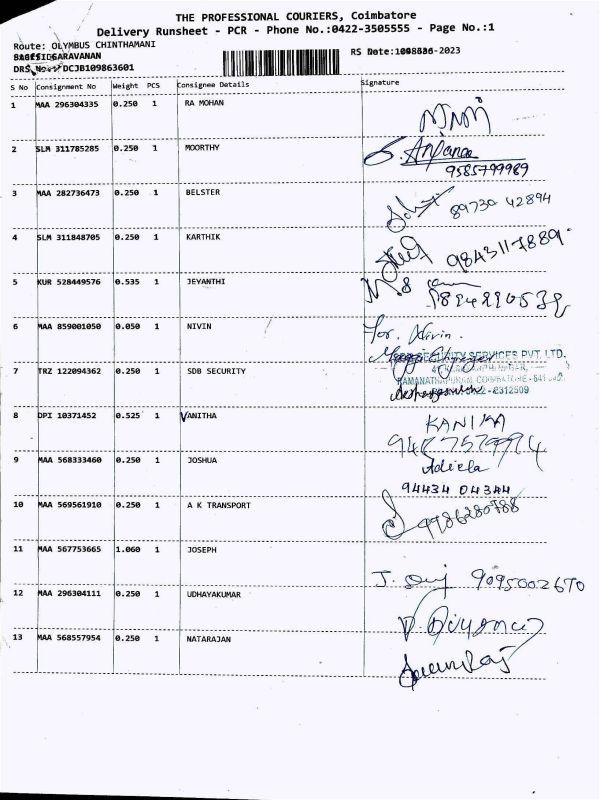 THE PROFESSIONAL COURIERS, Coimbatore
Delivery Runsheet - PCR - Phone No.:0422-3505555 - Page No.:1
Route: OLYMBUS CHINTHAMANI
SARAVANAN
RS Date: -2023
DRS No. DCJB109863601
S No Consignment No Weight PCS Consignee Details Signature
1 MAA 296304335 0.250 1 RA MOHAN
2 SLM 311785285 0.250 1 MOORTHY
9585799969
3 MAA 282736473 0.250 1 BELSTER
89730 42894
4 SLM 311848705 0.250 1 KARTHIK
9843117889
5 KUR 528449576 0.535 1 JEYANTHI
6 MAA 859001050 0.050 1 NIVIN
for. Nivin.
SECURITY SERVICES PVT. LTD.
7 TRZ 122094362 0.250 1 SDB SECURITY
8 DPI 10371452 0.525 1 VANITHA
KANIKA
9 MAA 568333460 0.250 1 JOSHUA
94434 04344
10 MAA 569561910 0.250 1 A K TRANSPORT
9986280788
11 MAA 567753665 1.060 1 JOSEPH
9095002670
12 MAA 296304111 0.250 1 UDHAYAKUMAR
13 MAA 568557954 0.250 1 NATARAJAN